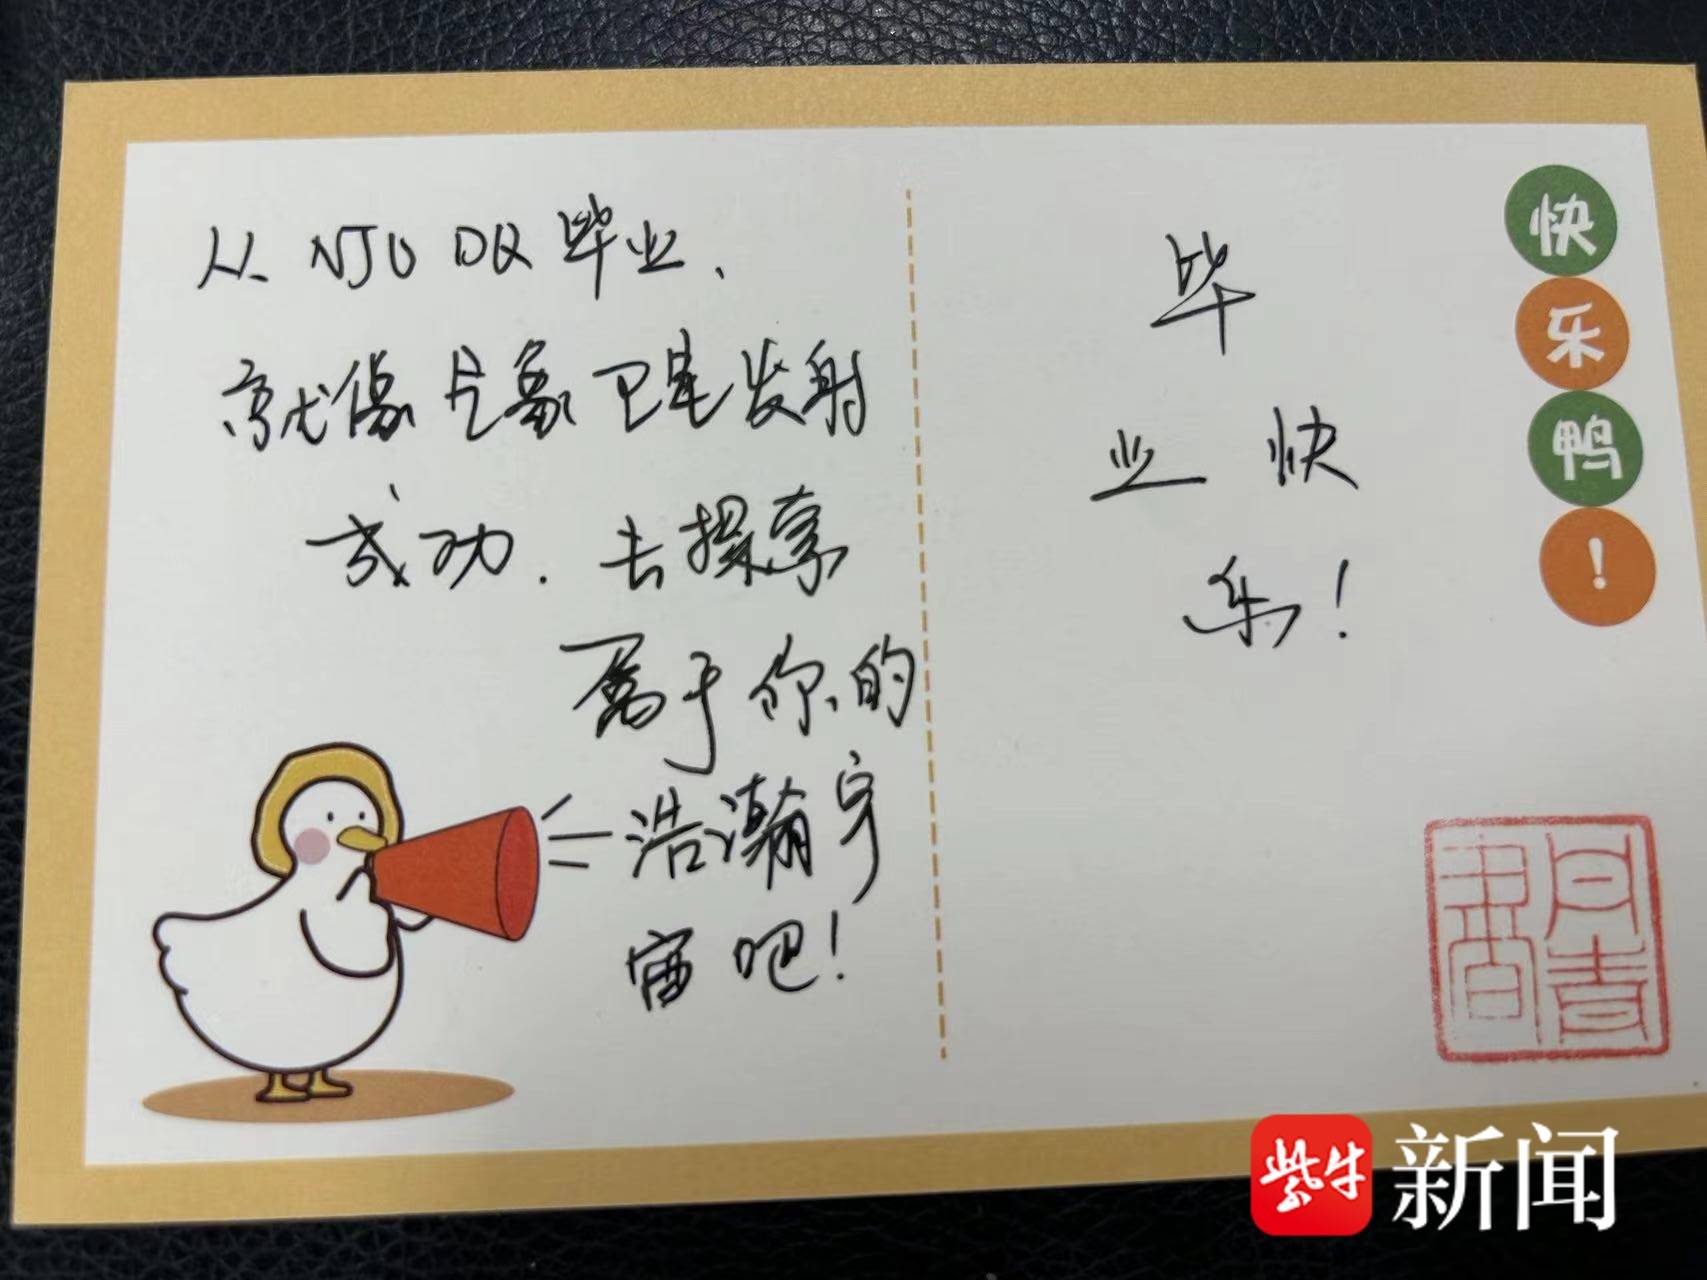 从 NJU DQ 毕业、
就像气象卫星发射
成功．去探索
属于你的
浩瀚宇
宙吧！
毕
业 快
乐！
快
乐
鸭
！
紫牛新闻